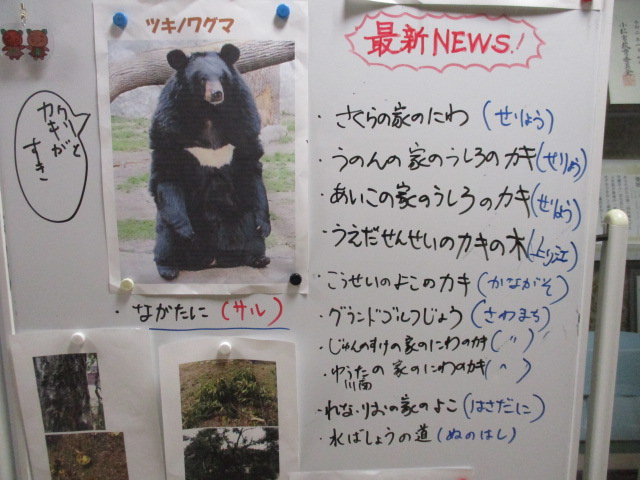 ツキノワグマ
クリと
カキが
すき
最新NEWS!
・さくらの家のにわ(せりょう)
・うのんの家のうしろのカキ(せりょう)
・あいこの家のうしろのカキ(せりょう)
・うえだせんせいのカキの木(上り江)
・こうせいのよこのカキ(かながそ)
・グランドゴルフじょう(さわまち)
・じゅんのすけの家のにわのカキ(〃)
・ゆうたの家のにわのカキ(〃)
川南
・れな・りおの家のよこ(はさだに)
・水ばしょうの道(ぬのはし)
・ながたに(サル)